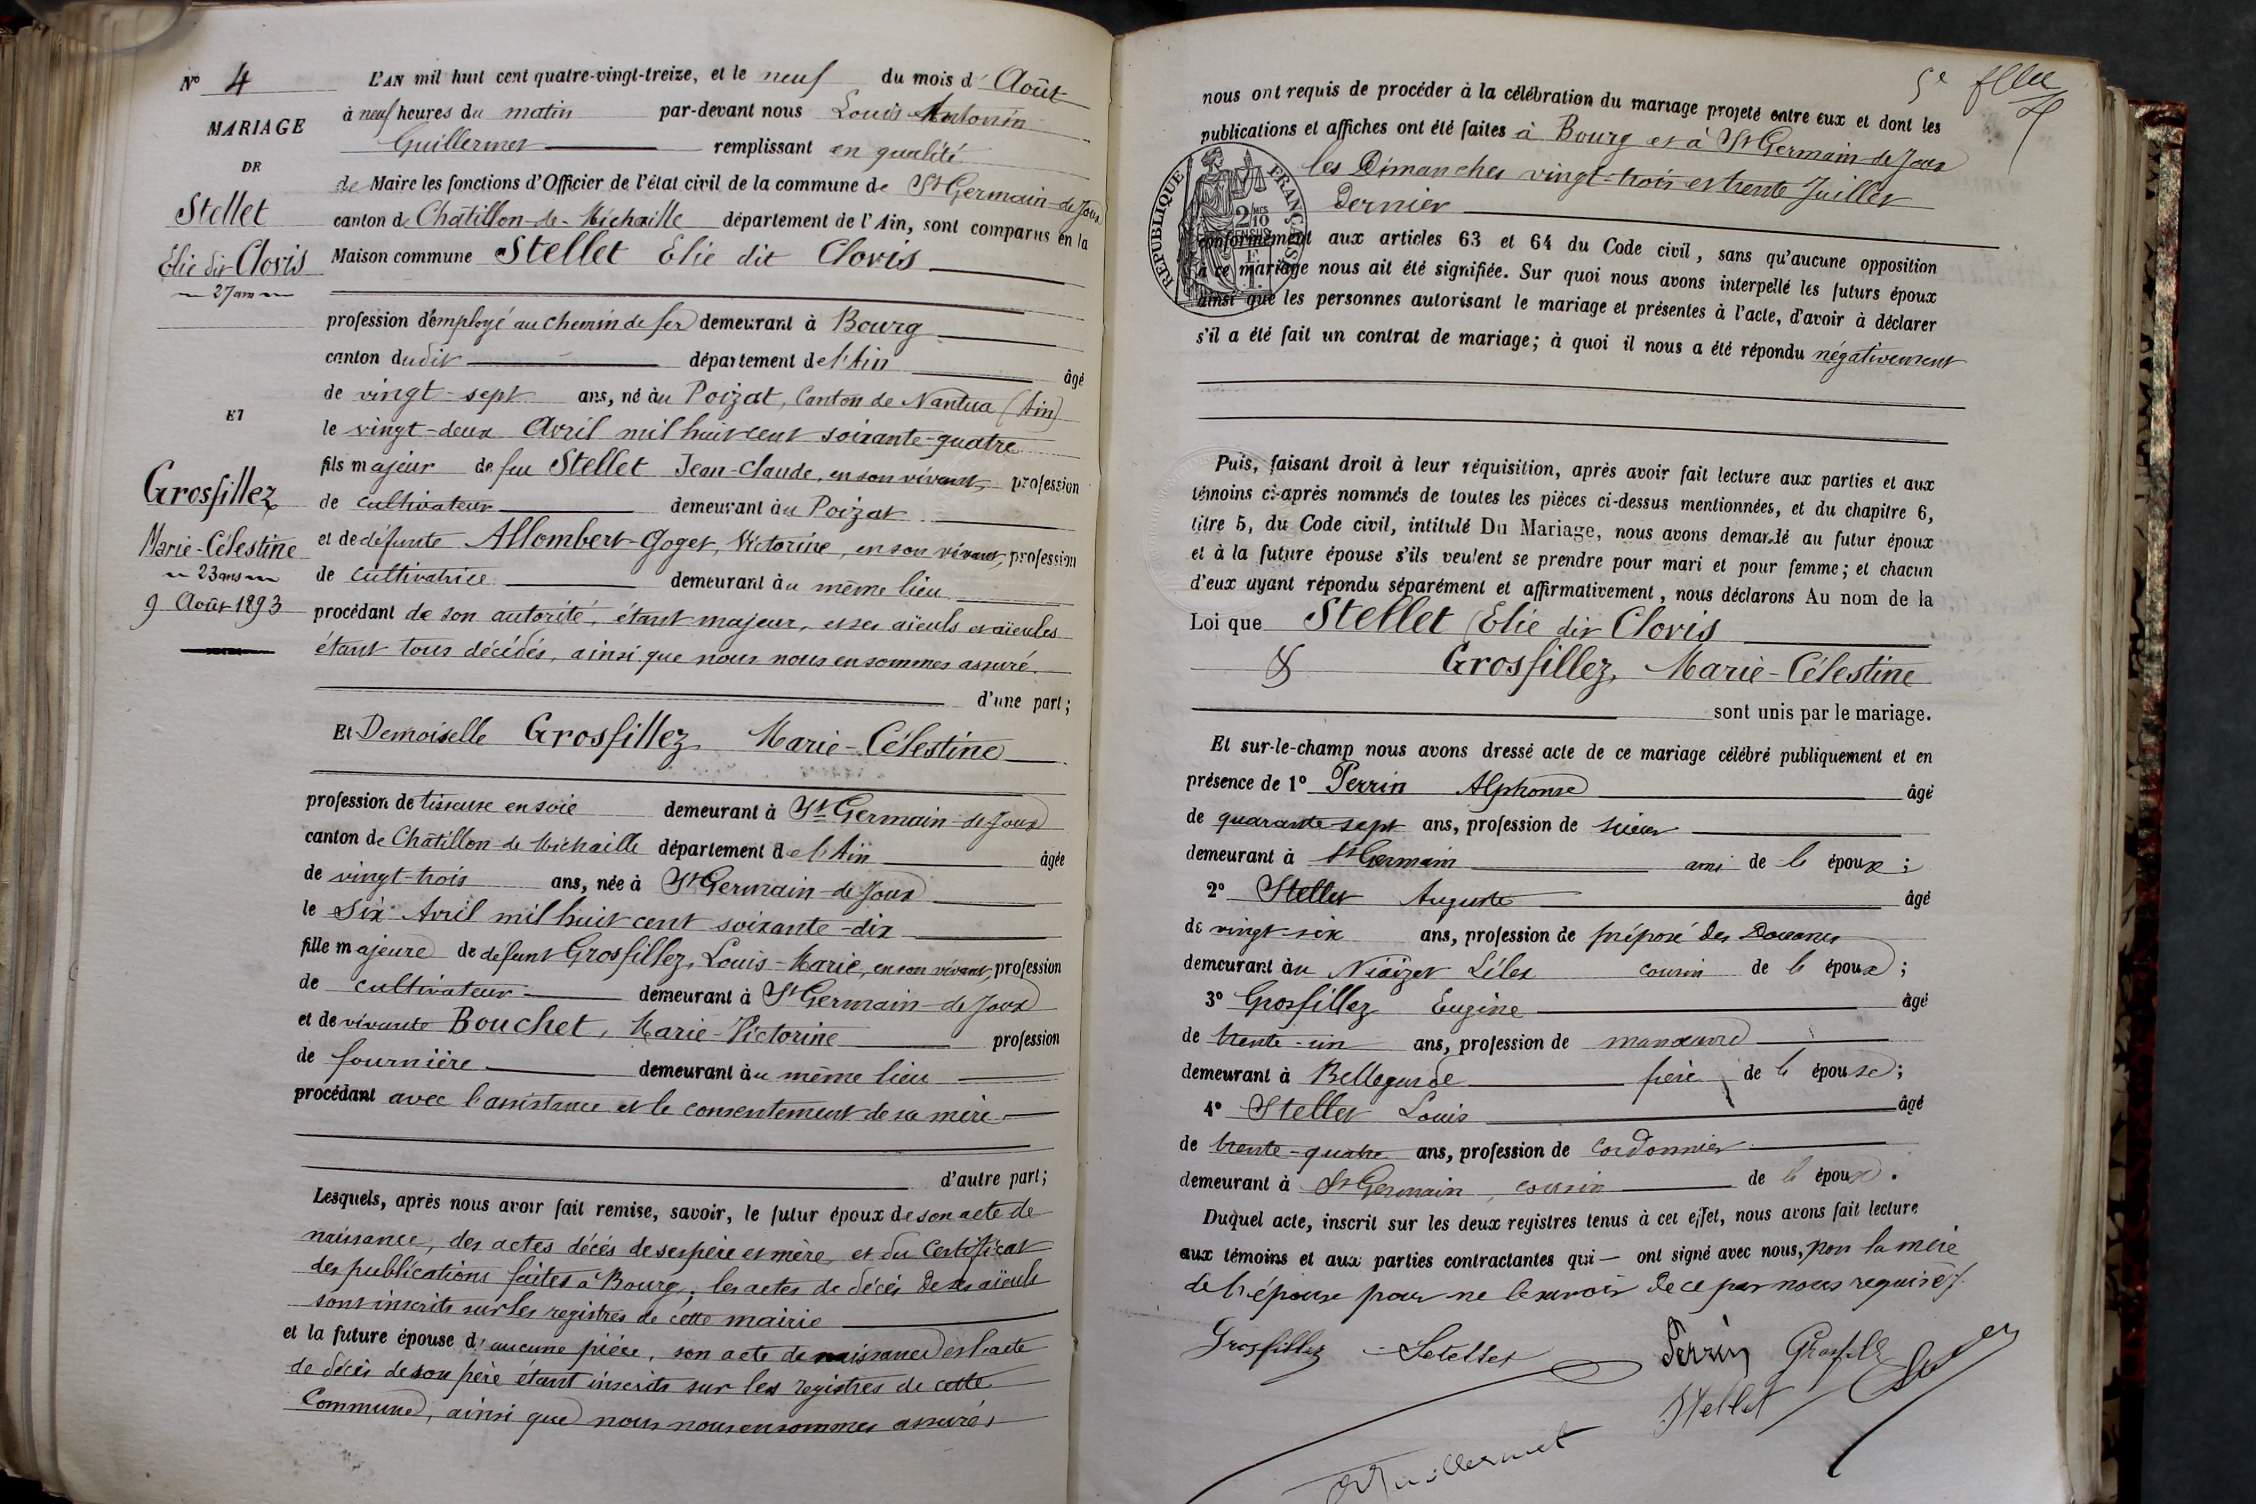 N° 4
MARIAGE
DE
Stellet
Elie dit Clovis
27 ans
ET
Grosfillez
Marie-Célestine
23 ans
9 Août 1893
L'AN mil huit cent quatre-vingt-treize, et le neuf du mois d' Août
à neuf heures du matin par-devant nous Louis Antonin
Guillermet remplissant en qualité
de Maire les fonctions d'Officier de l'état civil de la commune de St Germain-de-Joux
canton de Châtillon-de-Michaille département de l'Ain, sont comparus en la
Maison commune Stellet Elie dit Clovis
profession d'employé au chemin de fer demeurant à Bourg
canton dudit département de l'Ain âgé
de vingt-sept ans, né au Poizat, Canton de Nantua (Ain)
le vingt-deux Avril mil huit cent soixante-quatre
fils majeur de feu Stellet Jean-Claude, en son vivant, profession
de cultivateur demeurant au Poizat
et de défunte Allombert-Goget, Victorine, en son vivant, profession
de cultivatrice demeurant au même lieu
procédant de son autorité, étant majeur, et ses aïeuls et aïeules
étant tous décédés, ainsi que nous nous en sommes assuré.
d'une part;
Et Demoiselle Grosfillez Marie-Célestine
profession de tisseuse en soie demeurant à St Germain-de-Joux
canton de Châtillon de Michaille département de l'Ain âgée
de vingt-trois ans, née à St Germain-de-Joux
le six Avril mil huit cent soixante-dix
fille majeure de défunt Grosfillez, Louis-Marie, en son vivant, profession
de cultivateur demeurant à St Germain-de-Joux
et de vivante Bouchet, Marie-Victorine profession
de fournière demeurant au même lieu
procédant avec l'assistance et le consentement de sa mère
d'autre part;
Lesquels, après nous avoir fait remise, savoir, le futur époux de son acte de
naissance, des actes décès de ses père et mère, et du Certificat
des publications faites à Bourg; les actes de décès de ses aïeuls
sont inscrits sur les registres de cette mairie
et la future épouse d'aucune pièce, son acte de naissance et l'acte
de décès de son père étant inscrits sur les registres de cette
Commune, ainsi que nous nous en sommes assurés
5e flle
nous ont requis de procéder à la célébration du mariage projeté entre eux et dont les
publications et affiches ont été faites à Bourg et à St Germain-de-Joux
les Dimanches vingt-trois et trente Juillet
Dernier
REPUBLIQUE FRANÇAISE
2/10 EN SUS
conformément aux articles 63 et 64 du Code civil, sans qu'aucune opposition
à ce mariage nous ait été signifiée. Sur quoi nous avons interpellé les futurs époux
ainsi que les personnes autorisant le mariage et présentes à l'acte, d'avoir à déclarer
s'il a été fait un contrat de mariage; à quoi il nous a été répondu négativement
Puis, faisant droit à leur réquisition, après avoir fait lecture aux parties et aux
témoins ci-après nommés de toutes les pièces ci-dessus mentionnées, et du chapitre 6,
titre 5, du Code civil, intitulé Du Mariage, nous avons demandé au futur époux
et à la future épouse s'ils veulent se prendre pour mari et pour femme; et chacun
d'eux ayant répondu séparément et affirmativement, nous déclarons Au nom de la
Loi que Stellet Elie dit Clovis
& Grosfillez, Marie-Célestine
sont unis par le mariage.
Et sur-le-champ nous avons dressé acte de ce mariage célébré publiquement et en
présence de 1° Perrin Alphonse âgé
de quarante-sept ans, profession de scieur
demeurant à St Germain ami de l' époux;
2° Stellet Auguste âgé
de vingt-six ans, profession de préposé des Douanes
demeurant au cousin de l' époux;
3° Grosfillez Eugène âgé
de trente-un ans, profession de manœuvre
demeurant à Bellegarde frère de l' épouse;
4° Stellet Louis âgé
de trente-quatre ans, profession de cordonnier
demeurant à St Germain, cousin de l' époux.
Duquel acte, inscrit sur les deux registres tenus à cet effet, nous avons fait lecture
aux témoins et aux parties contractantes qui — ont signé avec nous, non la mère
de l'épouse pour ne le savoir de ce par nous requise.
Grosfillez Stellet Perrin Grosfillez
Stellet
Guillermet